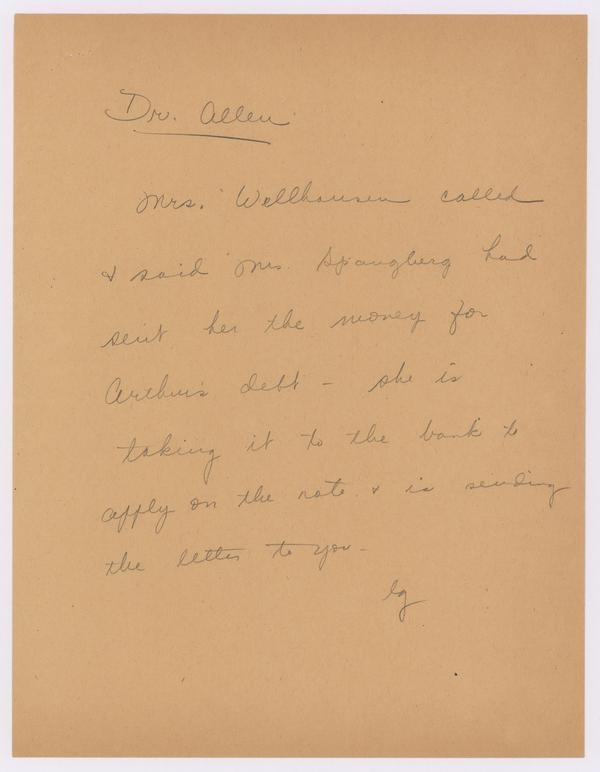 Dr. Allen
Mrs. Wellhausen called
& said Mrs. Spangberg had
sent her the money for
Arthur's debt - she is
taking it to the bank to
apply on the note & is sending
the letter to you -
lg